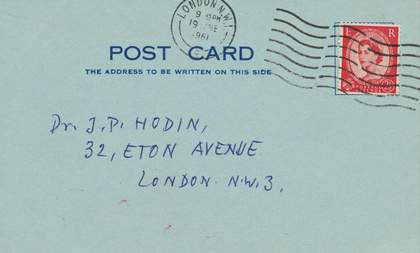 LONDON N.W.1
9 15PM
19 JNE
1961
E R
POST CARD
THE ADDRESS TO BE WRITTEN ON THIS SIDE
Dr. J.P. HODIN,
32, ETON AVENUE
LONDON N.W.3.